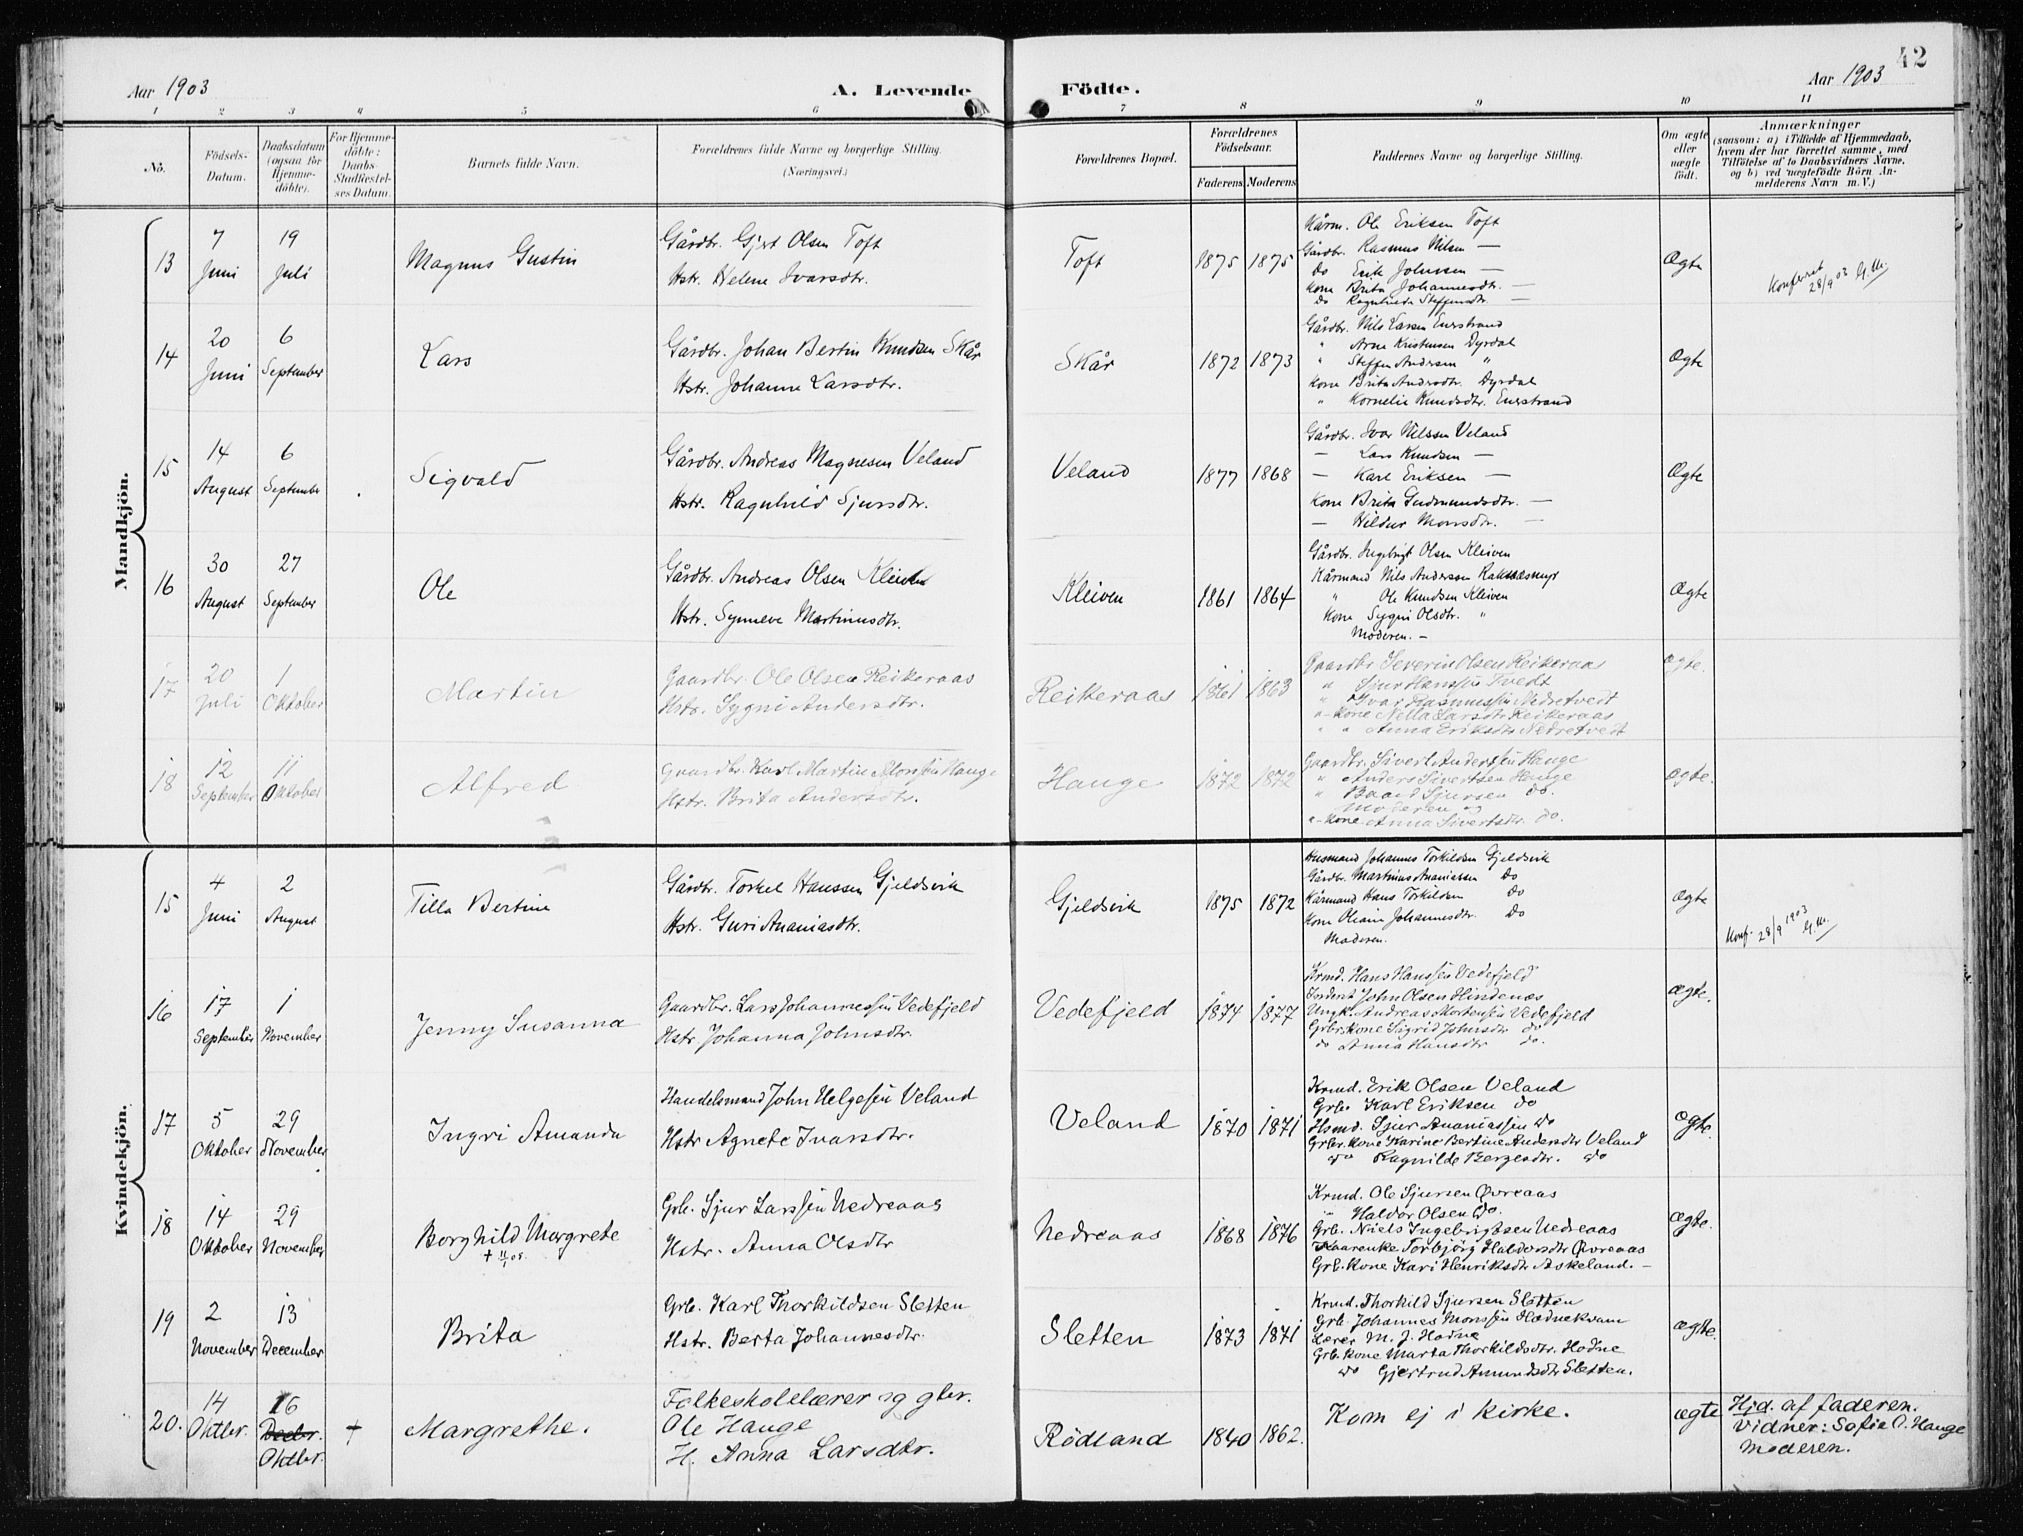 42
Aar 1903
A. Levende Födte.
Aar 1903
1 2 3 4 5 6 7 8 9 10 11
No.
Födsels-
Datum.
Daabsdatum
(ogsaa for
Hjemme-
döbte).
For Hjemme-
döbte:
Daabs-
Stadfæstel-
ses Datum.
Barnets fulde Navn.
Forældrenes fulde Navne og borgerlige Stilling.
(Næringsvei.)
Forældrenes Bopæl.
Forældrenes
Födselsaar.
Faderens Moderens
Faddernes Navne og borgerlige Stilling.
Om ægte
eller
uægte
födt.
Anmærkninger
(saasom: a) i Tilfælde af Hjemmedaab,
hvem der har forrettet samme, med
Tilföielse af to Daabsvidners Navne,
og b) ved uægtefödte Börn An-
melderens Navn m. V.)
Mandkjön.
13
7
Juni
19
Juli
Magnus Gustin
Gårdbr. Gjert Olsen Toft
Hstr. Helene Ivarsdtr.
Toft
1875 1875
Kårm. Ole Eriksen Toft
Gårdbr. Rasmus Nilsen —
do Erik Johnsen —
Kone Brita Johannesdtr. —
do Ragnhilda Steffensdtr. —
Ægte
Konfereret
28/9 03
14
20
Juni
6
September
Lars
Gårdbr. Johan Bertin Knudsen Skår
Hstr. Johanne Larsdtr.
Skår
1872 1873
Gårdbr. Nils Larsen Everstrand
" Arne Kristensen Dyrdal
" Steffen Andersen "
Kone Brita Andersdtr. Dyrdal
" Kornelie Knudsdtr. Everstrand
Ægte
15
14
August
6
September
Sigvald
Gårdbr. Andreas Magnesen Veland
Hstr. Ragnhild Sjursdtr.
Veland
1877 1868
Gårdbr. Ivar Nilssen Veland
— Lars Knudsen —
— Karl Eriksen —
Kone Brita Gudmundsdtr. —
— Hildur Monsdtr. —
Ægte
16
30
August
27
September
Ole
Gårdbr. Andreas Olsen Kleiven
Hstr. Synneve Martinusdtr.
Kleiven
1861 1864
Gårdbr. Ingebrigt Olsen Kleiven
Kårmand Nils Anderssen
" Ole Knudsen Kleiven
Kone Sygni Olsdtr. "
Moderen. —
Ægte
17
20
Juli
1
Oktober
Martin
Gaardbr. Ole Olsen Reikeraas
Hstr. Sygni Andersdtr.
Reikeraas
1861 1863
Gaardbr Severin Olsen Reikeraas
" Sjur Hanssen Tvedt
" Ivar Rasmussen Nedretvedt
"-Kone Nella Larsdtr Reikeraas
" " Anna Eriksdtr Nedretvedt
Ægte.
18
12
September
11
Oktober
Alfred
Gaardbr. Karl Martin Monsen Hauge
Hstr. Brita Andersdtr.
Hauge
1872 1872
Gaardbr. Sivert Anderssen Hauge
" Anders Sivertsen Hauge
" Baard Sjursen do.
Moderen og
"-Kone Anna Sivertsdtr. do.
Ægte.
Kvindekjön.
15
4
Juni
2
August
Tilla Bertine
Gårdbr. Torkel Hanssen Gjeldsvik
Hstr. Guri Ananiasdtr.
Gjeldsvik
1875 1872
Husmand Johannes Torkildsen Gjeldsvik
Gårdbr. Martinus Ananiassen Do
Kårmand Hans Torkildsen Do
Kone Oleane Johannesdtr. Do
Moderen.
Ægte
Konf. 28/9 1903
16
17
September
1
November
Jenny Susanna
Gaardbr. Lars Johannessen Vedefjeld
Hstr Johanna Johnsdtr.
Vedefjeld
1874 1877
Krmd. Hans Hanssen Vedefjeld
John Olsen Hindenæs
Ungk. Andreas Mortensen Vedefjeld
Grbr. kone Sigrid Johnsdtr do
do Anna Hansdtr do.
Ægte.
17
5
Oktober
29
November
Ingri Amanda
Handelsmand John Helgesen Veland
Hstr Agnete Ivarsdtr.
Veland
1870 1871
Krmd. Erik Olsen Veland
Grb. Karl Eriksen do
Hsmd. Sjur Ananiassen do
Grbr. kone Karine Bertine Andersdtr Veland
do Ragnilde Bergesdtr. do
Ægte.
18
14
Oktober
29
November
Borghild Margrete
+ 11/1 05.
Grb. Sjur Larssen Nedreaas
Hstr. Anna Olsdtr
Nedreaas
1868 1876
Krmd. Ole Sjursen Øvreaas
" Haldor Olsen do.
Grb. Niels Ingebrigtsen Nedreaas
Kaarenke Torbjørg Haldorsdtr Øvreaas
Grb. kone Kari Henriksdtr Askeland. —
Ægte.
19
2
November
13
December
Brita
Grb. Karl Thorkildsen Sletten
Hstr. Berta Johannesdtr.
Sletten
1873 1871
Krmd. Thorkild Sjursen Sletten
Grb. Johannes Monssen Hødnekvam
Lærer M. J. Hodne
Grb. kone Marta Thorkildsdtr. Hodne
do Gjertrud Amundsdtr Sletten.
ægte.
20.
14
Oktbr.
16
Decbr.
Oktbr.
+
Margrethe.
Folkeskolelærer og gbr.
Ole Hauge
H. Anna Larsdtr.
Rödland
1840 1862.
Kom ej i kirke.
ægte
Hjd. af faderen.
Vidner: Sofia O. Hauge
Moderen.